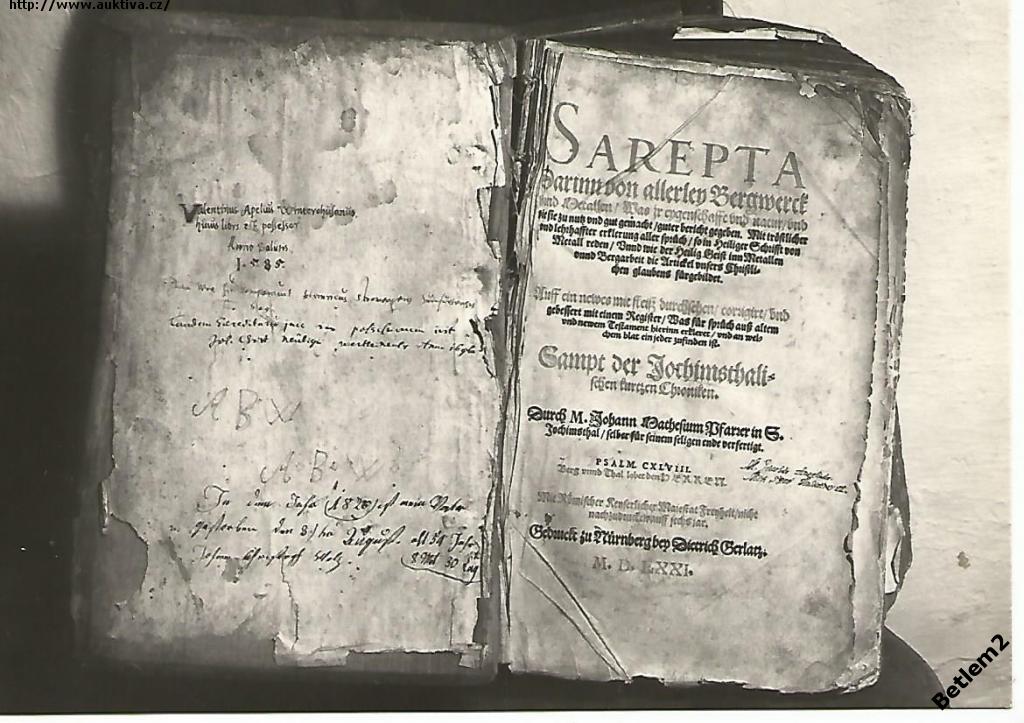 http://www.auktiva.cz/
Valentinus Apelius Winterhusanus
huius libri est possessor
Anno Salutis
1.5.85.
tandem hereditario jure in possessionem
A B
A B
In dem Jahr (1828) ist mein Vater
gestorben den 8ten August alt 51 Jahr
8 Mot 30 tag
SAREPTA
Darinn von allerley Bergwerck
vnd Metallen / Was jr eygenschafft vnd natur / vnd
wie sie zu nutz vnd gut gemacht / guter bericht gegeben. Mit tröstlicher
vnd lehrhaffter erklerung aller sprüch / so in Heiliger Schrifft von
Metall reden / Vnnd wie der Heilig Geist inn Metallen
vnnd Bergarbeit die Artickel vnsers Christli-
chen glaubens fürgebildet.
Auff ein newes mit fleiß durchsehen / corrigirt / vnd
gebessert mit einem Register / Was für sprüch auß altem
vnd newem Testament hierinn erkleret / vnd an wel-
chem blat ein jeder zufinden ist.
Sampt der Jochimsthali-
schen kurtzen Chroniken.
Durch M. Johann Mathesium Pfarrer in S.
Jochimsthal / selber für seinem seligen ende verfertigt.
PSALM. CXLVIII.
Berg vnnd Thal lobet den HERREN.
Mit Römischer Keyserlicher Majestat Freyheit / nicht
nachzudrucken auff sechs jar.
Gedruckt zu Nürnberg bey Dietrich Gerlatz.
M. D. LXXI.
Betlem2